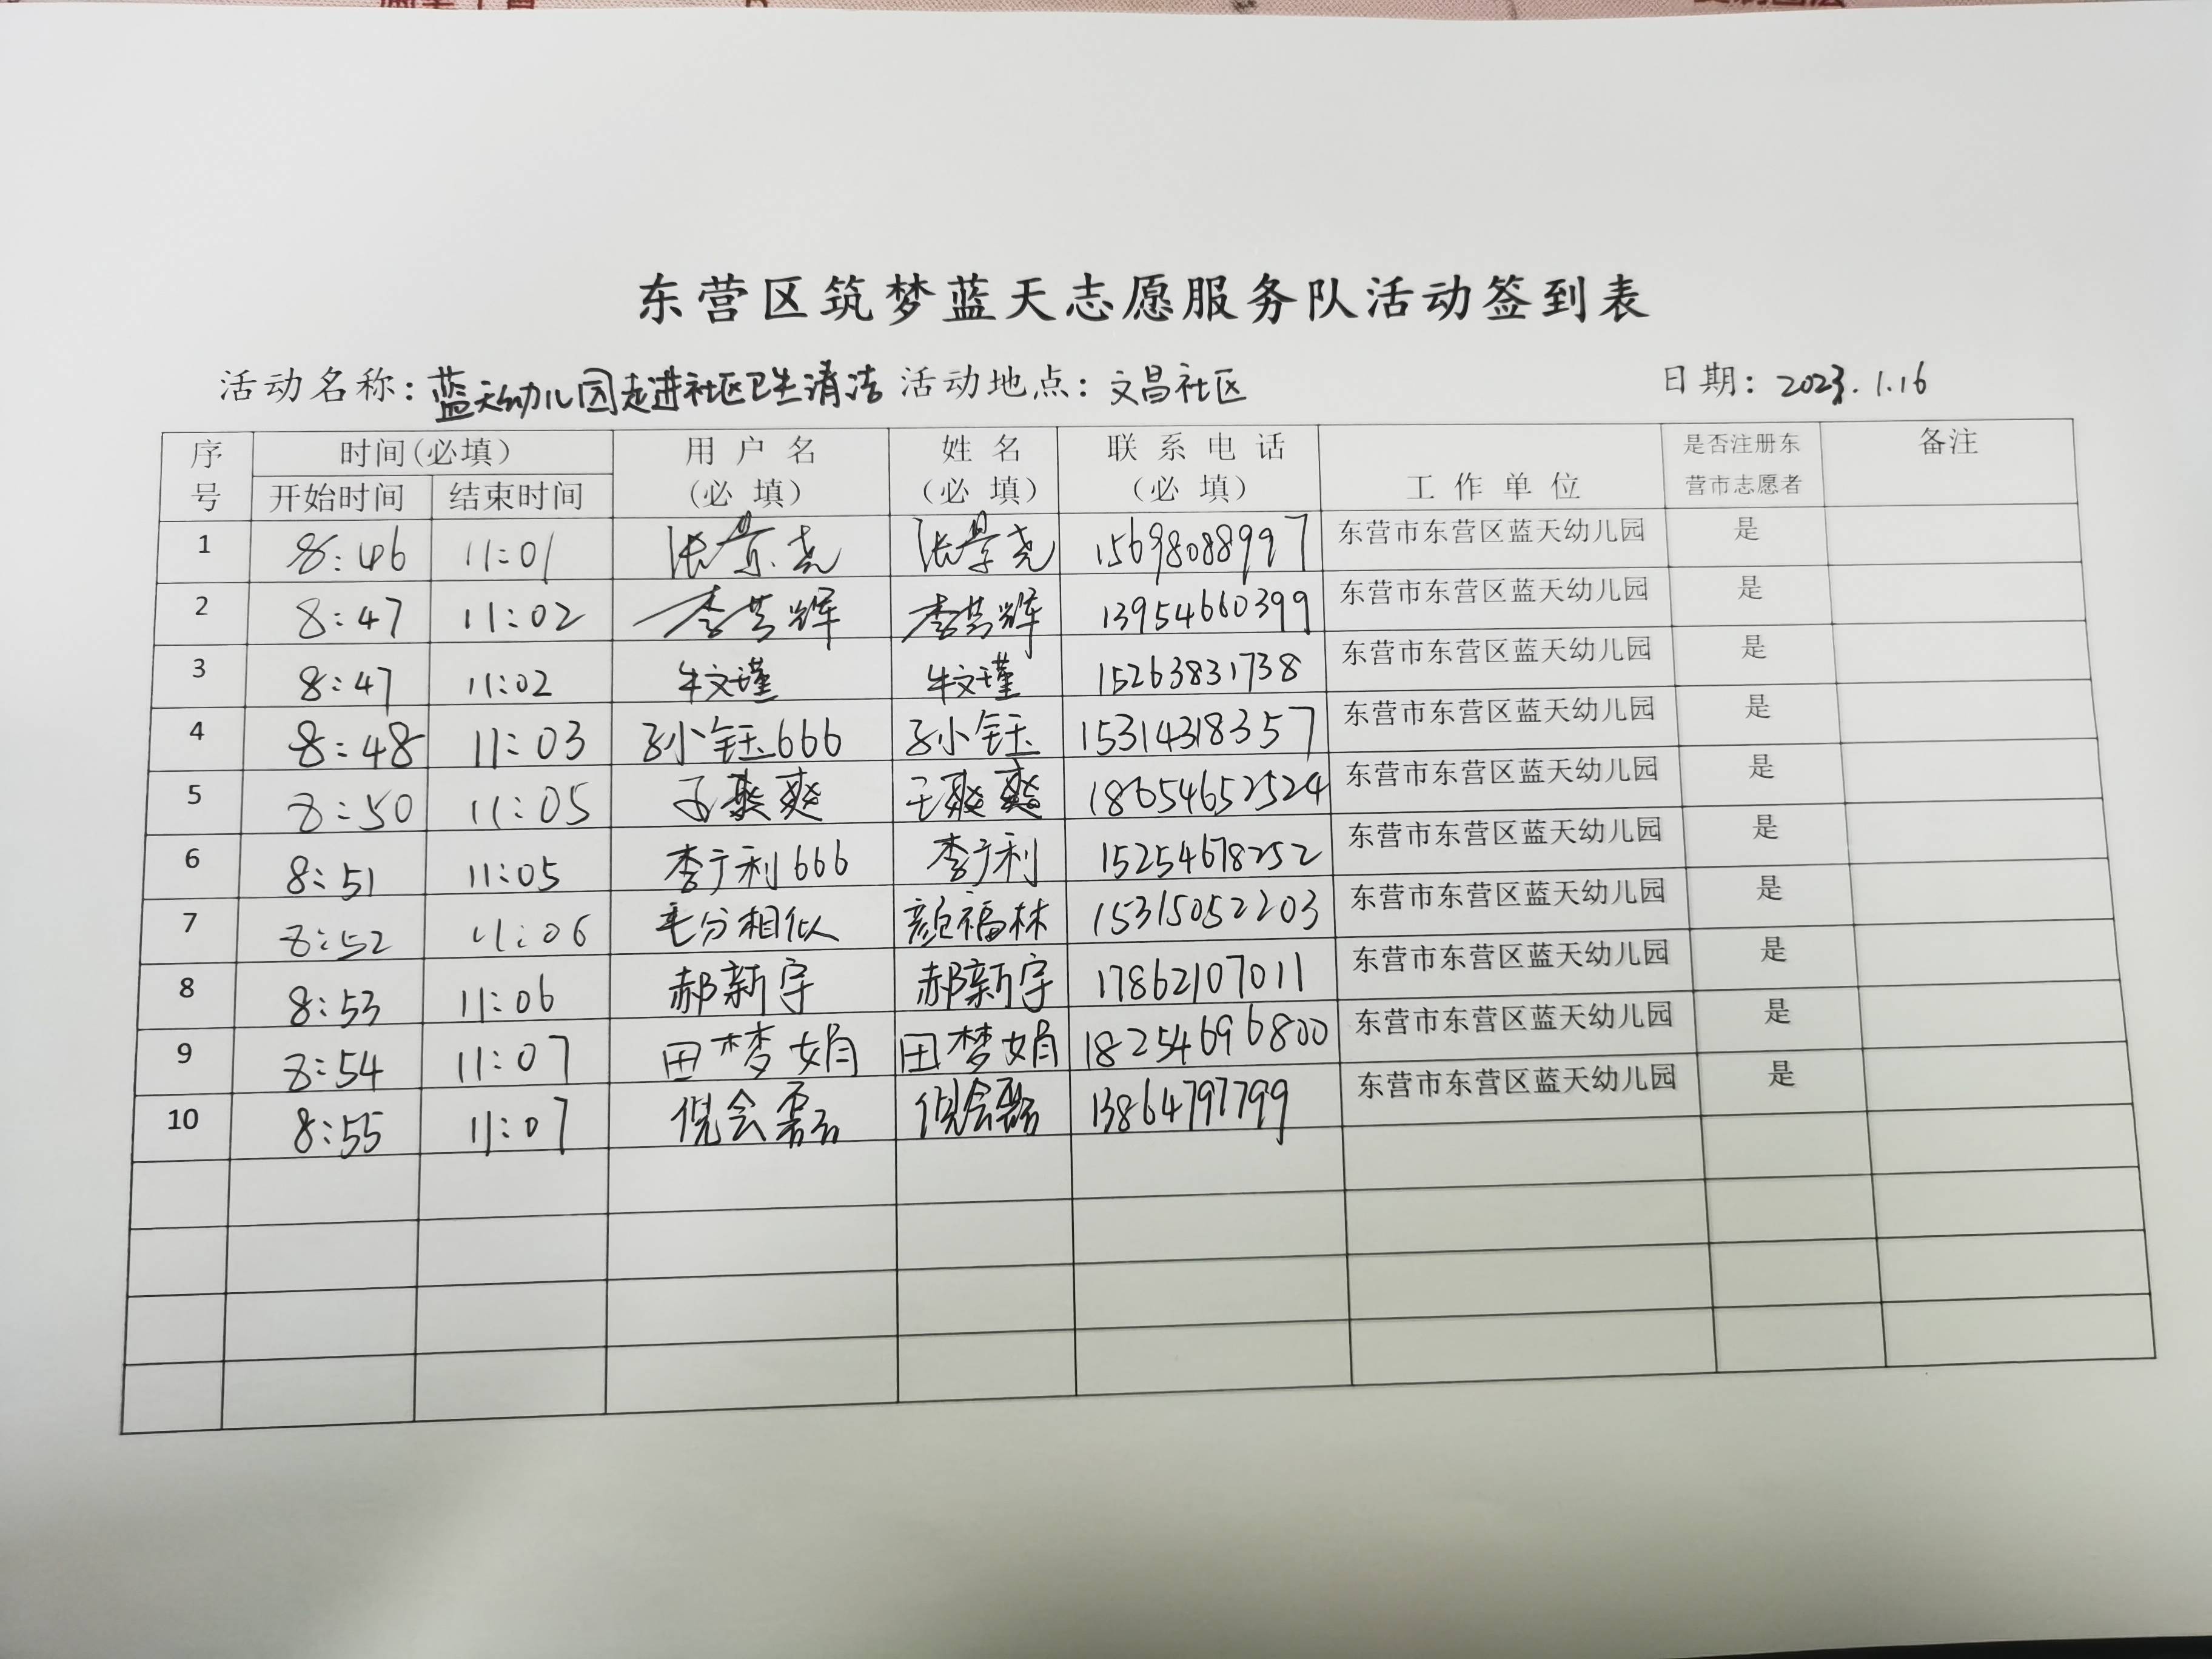 东营区筑梦蓝天志愿服务队活动签到表
活动名称：蓝天幼儿园走进社区卫生清洁 活动地点：文昌社区 日期：2023.1.16
序号 时间(必填) 用户名(必填) 姓名(必填) 联系电话(必填) 工作单位 是否注册东营市志愿者 备注
开始时间 结束时间
1 8:46 11:01 张景尧 张景尧 15698088997 东营市东营区蓝天幼儿园 是
2 8:47 11:02 李其辉 李其辉 13954660399 东营市东营区蓝天幼儿园 是
3 8:47 11:02 牛文瑾 牛文瑾 15263831738 东营市东营区蓝天幼儿园 是
4 8:48 11:03 孙小钰666 孙小钰 15314318357 东营市东营区蓝天幼儿园 是
5 8:50 11:05 王爽爽 王爽爽 18654652524 东营市东营区蓝天幼儿园 是
6 8:51 11:05 李于利666 李于利 15254678252 东营市东营区蓝天幼儿园 是
7 8:52 11:06 毛分相似 颜福林 15315052203 东营市东营区蓝天幼儿园 是
8 8:53 11:06 郝新宇 郝新宇 17862107011 东营市东营区蓝天幼儿园 是
9 8:54 11:07 田梦娟 田梦娟 18254696800 东营市东营区蓝天幼儿园 是
10 8:55 11:07 倪会磊 倪会磊 13864797799 东营市东营区蓝天幼儿园 是